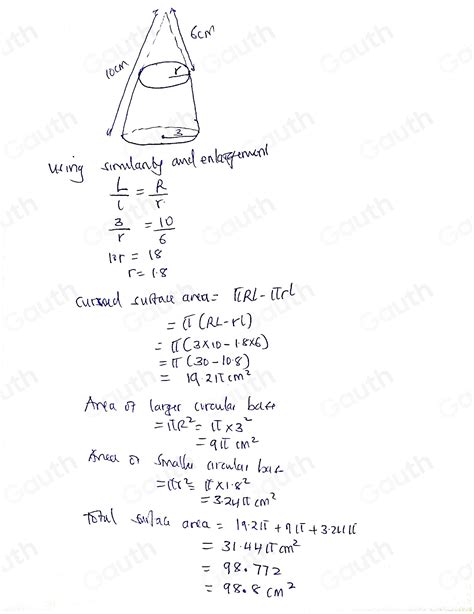 6cm
10cm
r
3
using similarity and enlargement
L/l = R/r
3/r = 10/6
10r = 18
r = 1.8
Curved surface area = πRL - πrl
= π(RL - rl)
= π(3×10 - 1.8×6)
= π(30 - 10.8)
= 19.2πcm²
Area of larger circular base
= πR² = π×3²
= 9π cm²
Area of smaller circular base
= πr² = π×1.8²
= 3.24π cm²
Total surface area = 19.2π + 9π + 3.24π
= 31.44πcm²
= 98.772
= 98.8 cm²
Gauth